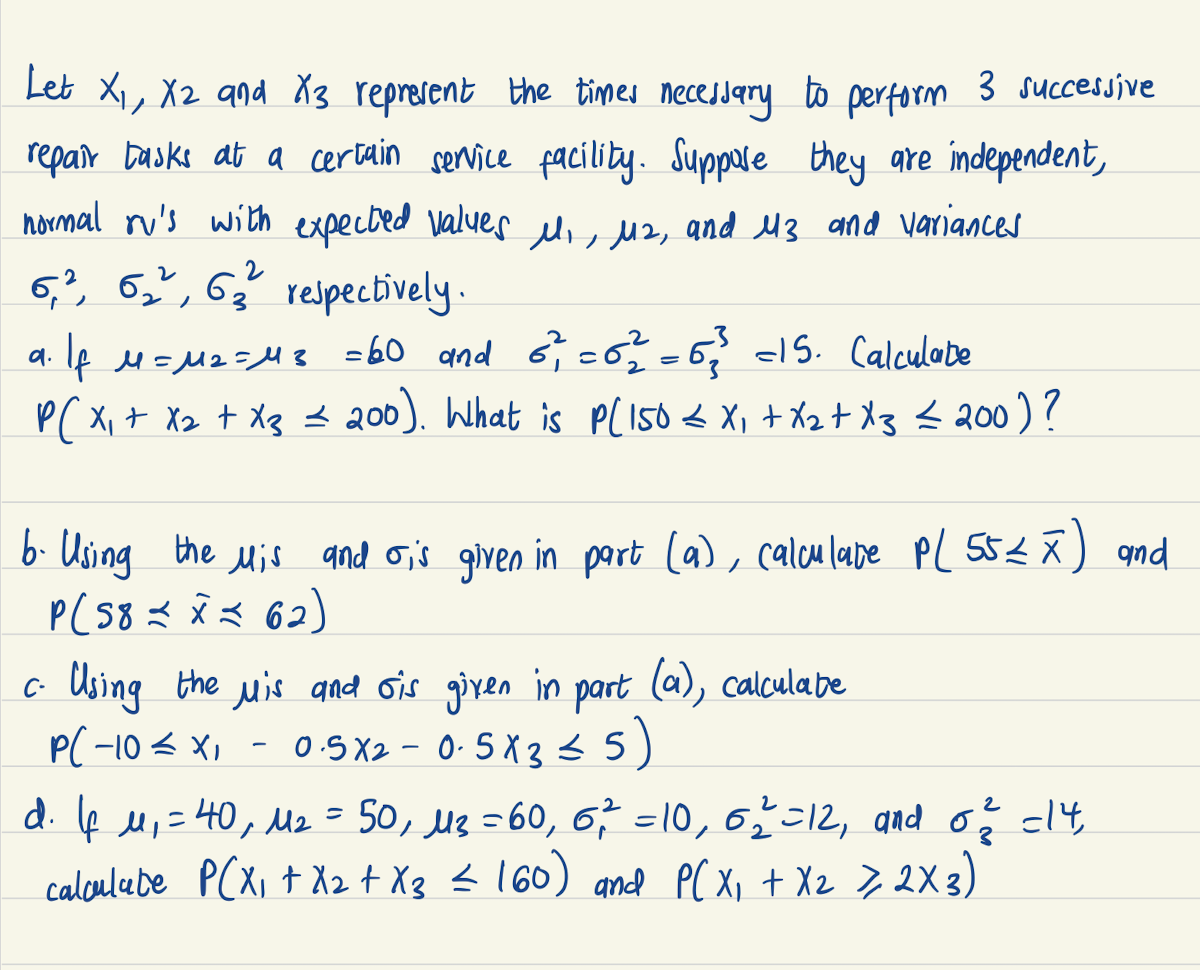 Let X₁, X2 and X3 represent the times necessary to perform 3 successive
repair tasks at a certain service facility. Suppose they are independent,
normal rv's with expected values μ₁, μ2, and μ3 and variances
σ₁², σ₂², σ₃² respectively.
a. If μ=μ2=μ3 =60 and σ₁²=σ₂²=σ₃³ =15. Calculate
P( X₁ + X2 + X3 ≤ 200). What is P(150 ≤ X₁ +X2+ X3 ≤ 200)?
b. Using the μis and σis given in part (a), calculate P( 55≤ x̄) and
P(58 ≤ x̄ ≤ 62)
c. Using the μis and σis given in part (a), calculate
P( -10 ≤ X₁ - 0.5X2 - 0.5X3 ≤ 5)
d. If μ₁=40, μ2 = 50, μ3 =60, σ₁² =10, σ₂²=12, and σ₃² =14,
calculate P(X₁ + X2 + X3 ≤ 160) and P( X₁ + X2 ≥ 2X3)